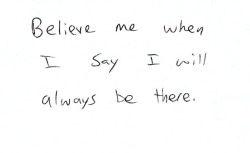 Believe me when
I say I will
always be there.